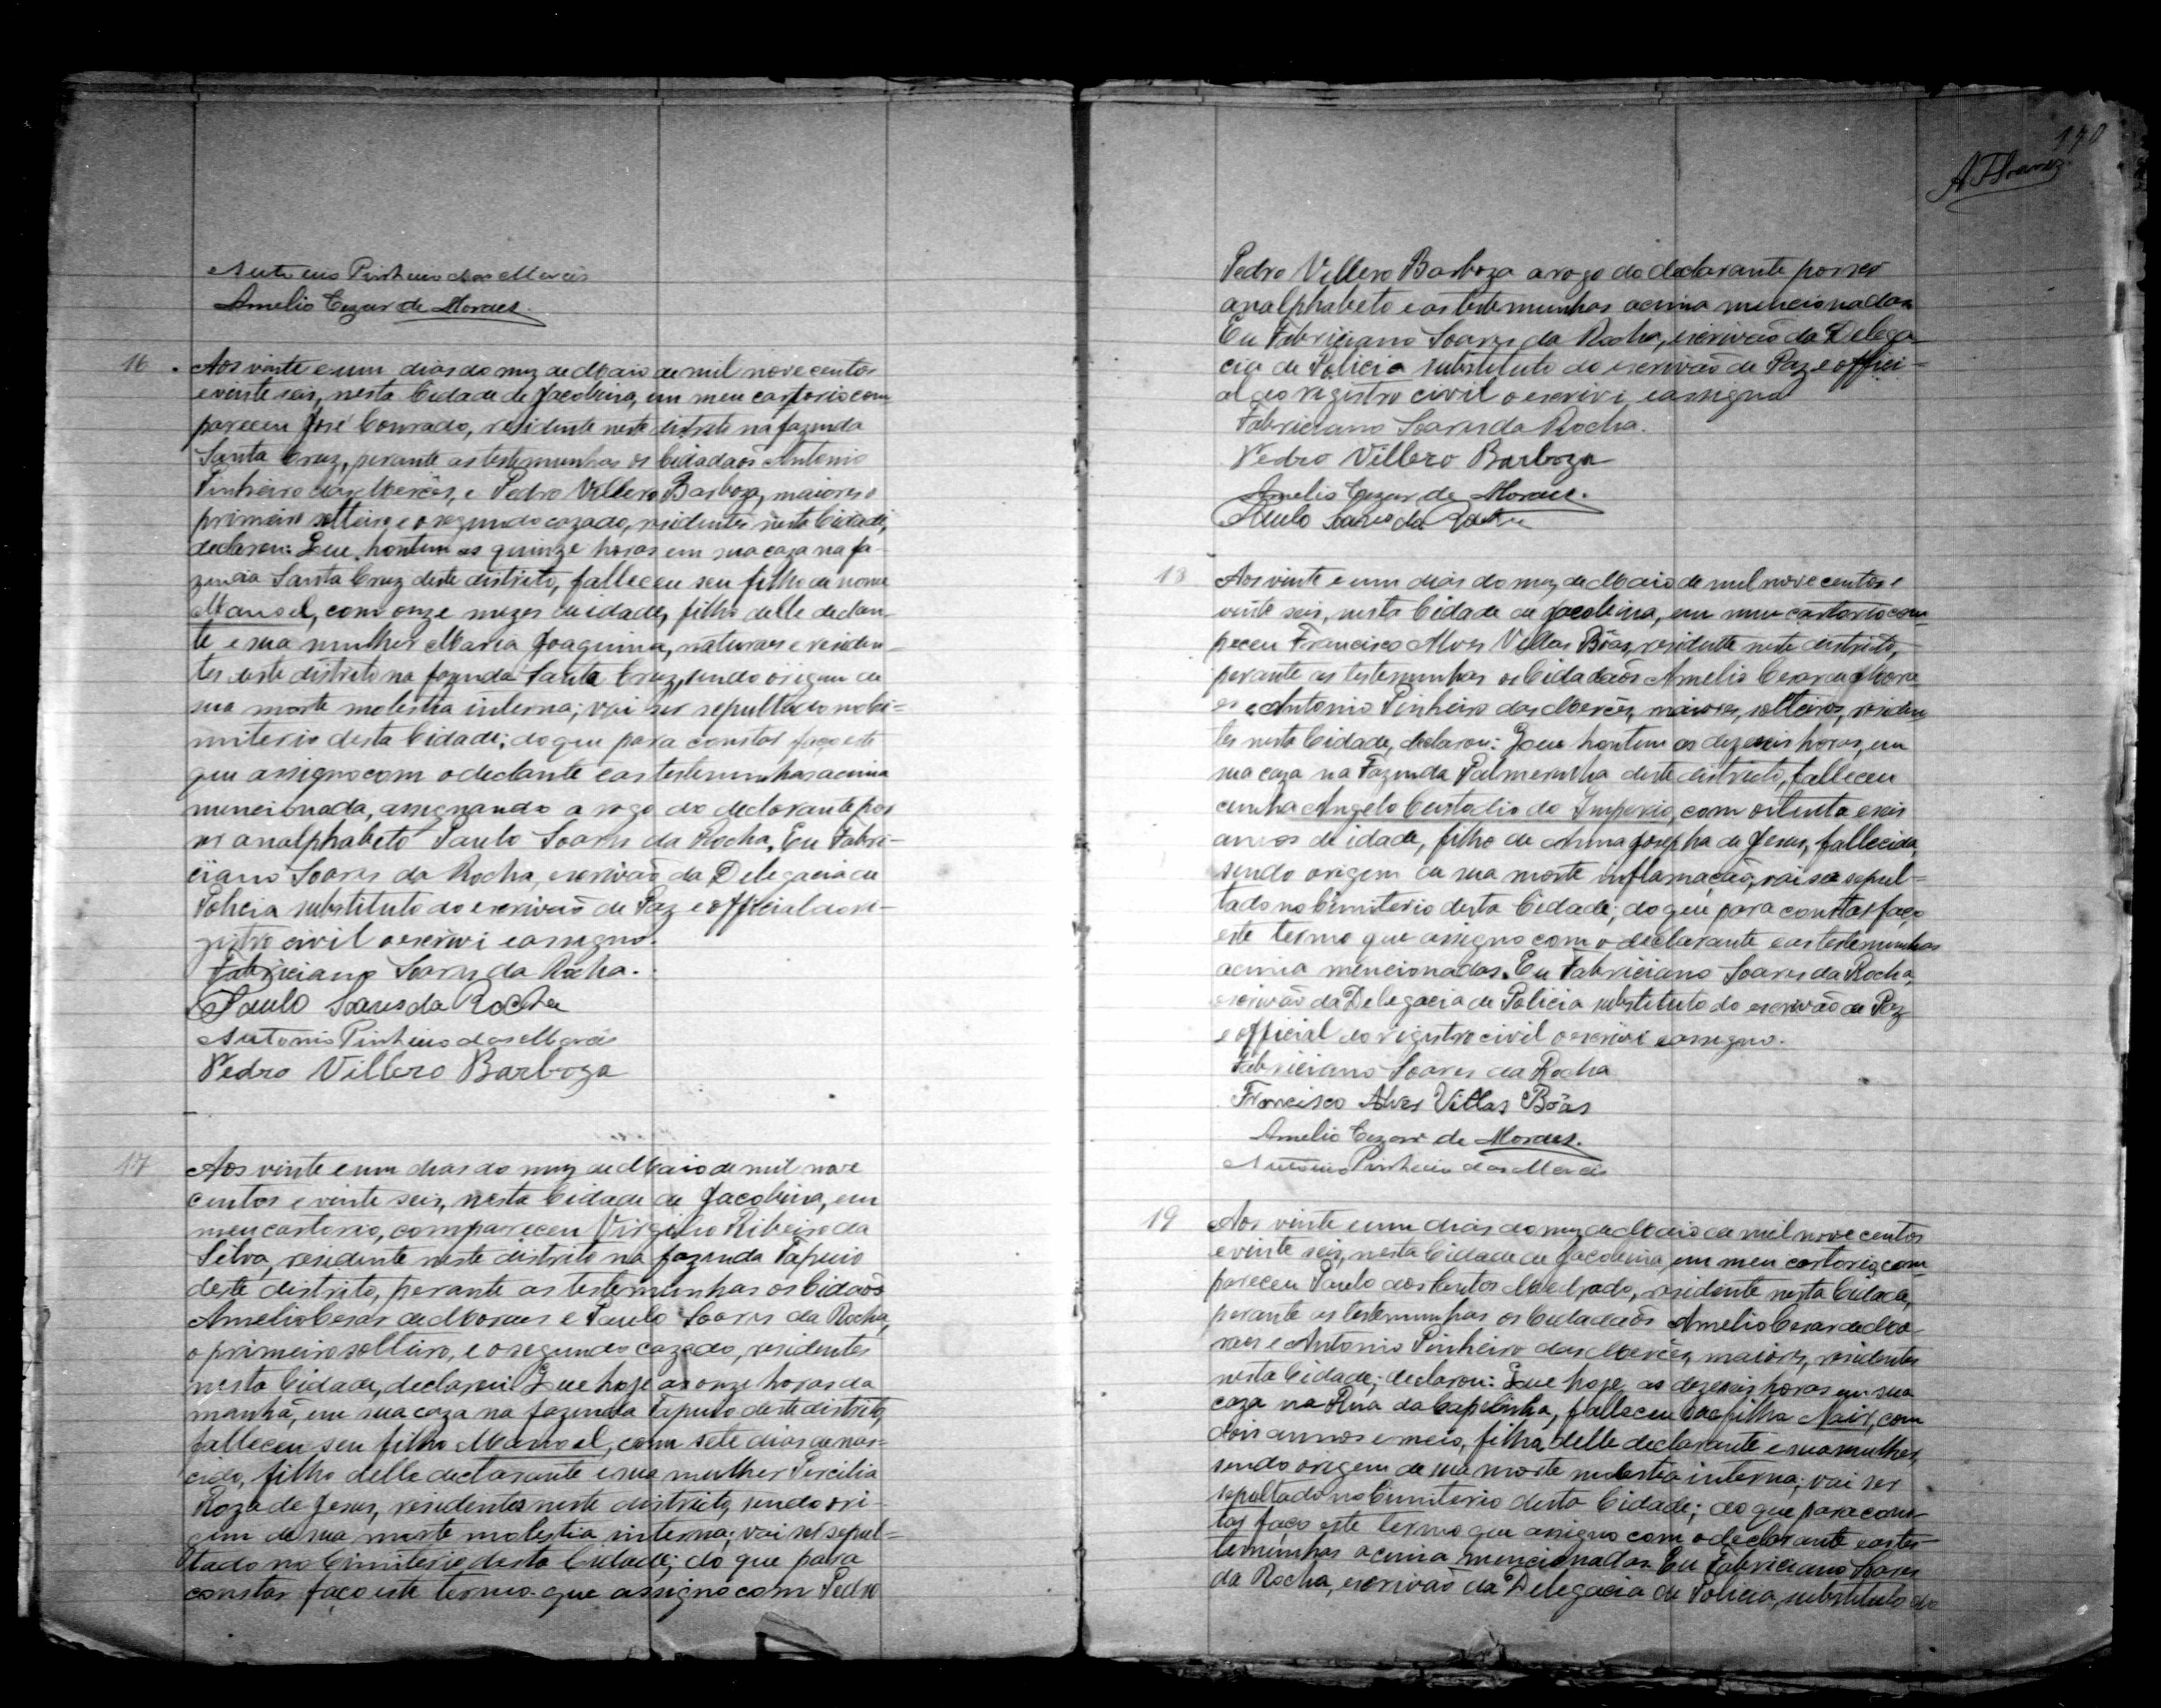 Antonio Pinheiro das Mercês
Amelio Cezar de Moraes.
16
Aos vinte e um dias do mez de Maio de mil nove centos
e vinte seis, nesta Cidade de Jacobina, em meu cartorio com
pareceu José Conrado, residente neste distrito na fazenda
Santa Cruz, perante as testemunhas os Cidadãos Antonio
Pinheiro das Mercês, e Pedro Villero Barboza, maiores o
primeiro solteiro, e o segundo cazado, residentes nesta Cidade,
declarou: Que, hontem as quinze horas em sua caza na fa-
zenda Santa Cruz deste distrito, falleceu seu filho de nome
Manoel, com onze mezes de idade, filho delle declaran-
te e sua mulher Maria Joaquina, naturaes e residen-
tes neste distrito na fazenda Santa Cruz, sendo origem de
sua morte molestia interna; vai ser sepultado no Ci=
miterio desta Cidade; do que para constar faço este
que assigno com o declante e as testemunhas acima
mencionada, assignando a rogo do declarante por
ser analphabeto Paulo Soares da Rocha. Eu Fabri-
ciano Soares da Rocha, escrivão da Delegacia de
Policia substituto do escrivão de Paz e official do re-
gistro civil o escrivi e assigno.
Fabriciano Soares da Rocha.
Paulo Soares da Rocha
Antonio Pinheiro das Mercês
Pedro Villero Barboza
17
Aos vinte e um dias do mez de Maio de mil nove
centos e vinte seis, nesta Cidade de Jacobina, em
meu cartorio, compareceu Virgilio Ribeiro da
Silva, residente neste distrito na fazenda Tapuio
deste distrito, perante as testemunhas os Cidaos
Amelio Cesar de Moraes e Paulo Soares da Rocha,
o primeiro solteiro, e o segundo cazado, residentes
nesta Cidade, declarou: Que hoje as onze horas da
manhã, em sua caza na fazenda Tapuio deste distrito,
falleceu seu filho Manoel, com sete dias de nas=
cido, filho delle declarante e sua mulher Percilia
Roza de Jesus, residentes neste districto, sendo ori-
gem de sua morte molestia interna; vai ser sepul=
tado no Cimiterio desta Cidade; do que para
constar faço este termo que assigno com Pedro
170
Pedro Villero Barboza a rogo do declarante por ser
analphabeto e as testemunhas acima mencionadas
Eu Fabriciano Soares da Rocha, escrivão da Delega
cia de Policia substituto do escrivão de Paz e offici-
al do registro civil o escrivi e assigno
Fabriciano Soares da Rocha.
Pedro Villero Barboza
Amelio Cezar de Moraes.
Paulo Soares da Rocha
18
Aos vinte e um dias do mez de Maio de mil nove centos e
vinte seis, nesta Cidade de Jacobina, em meu cartorio com
peceu Francisco Alves Villas Bôas, residente neste districto,
perante as testemunhas os Cidadãos Amelio Cesar de Mora
es e Antonio Pinheiro das Mercês, maiores, solteiros, residen
tes nesta Cidade, declarou: Que hontem as dezeseis horas, em
sua caza na Fazenda Palmeirinha deste districto, falleceu
Angelo Custodio do Imperio, com oitenta e seis
annos de idade, filho de Anna Josepha de Jesus, fallecida,
sendo origem de sua morte inflamação, vai ser sepul-
tado no Cimiterio desta Cidade; do que para constar faço
este termo que assigno com o declarante e as testemunhas
acima mencionadas. Eu Fabriciano Soares da Rocha,
escrivão da Delegacia de Policia substituto do escrivão de Paz
e official do registro civil o escrivi e assigno.
Fabriciano Soares da Rocha
Francisco Alves Villas Bôas
Amelio Cezar de Moraes.
Antonio Pinheiro das Mercês
19
Aos vinte e um dias do mez de Maio de mil nove centos
e vinte seis, nesta Cidade de Jacobina, em meu cartorio, com
pareceu Paulo dos Santos Machado, residente nesta Cidade,
perante as testemunhas os Cidadãos Amelio Cesar de Mo
raes e Antonio Pinheiro das Mercês, maiores, residentes
nesta Cidade; declarou: Que hoje, as dezeseis horas em sua
caza na Rua da Capelinha, falleceu sua filha Nair, com
dois annos e meio, filha delle declarante e sua mulher,
sendo origem de sua morte molestia interna; vai ser
sepultado no Cimiterio desta Cidade; do que para cons-
tar faço este termo que assigno com o declarante e as tes
temunhas acima mencionadas. Eu Fabriciano Soares
da Rocha, escrivão da Delegacia de Policia, substituto do